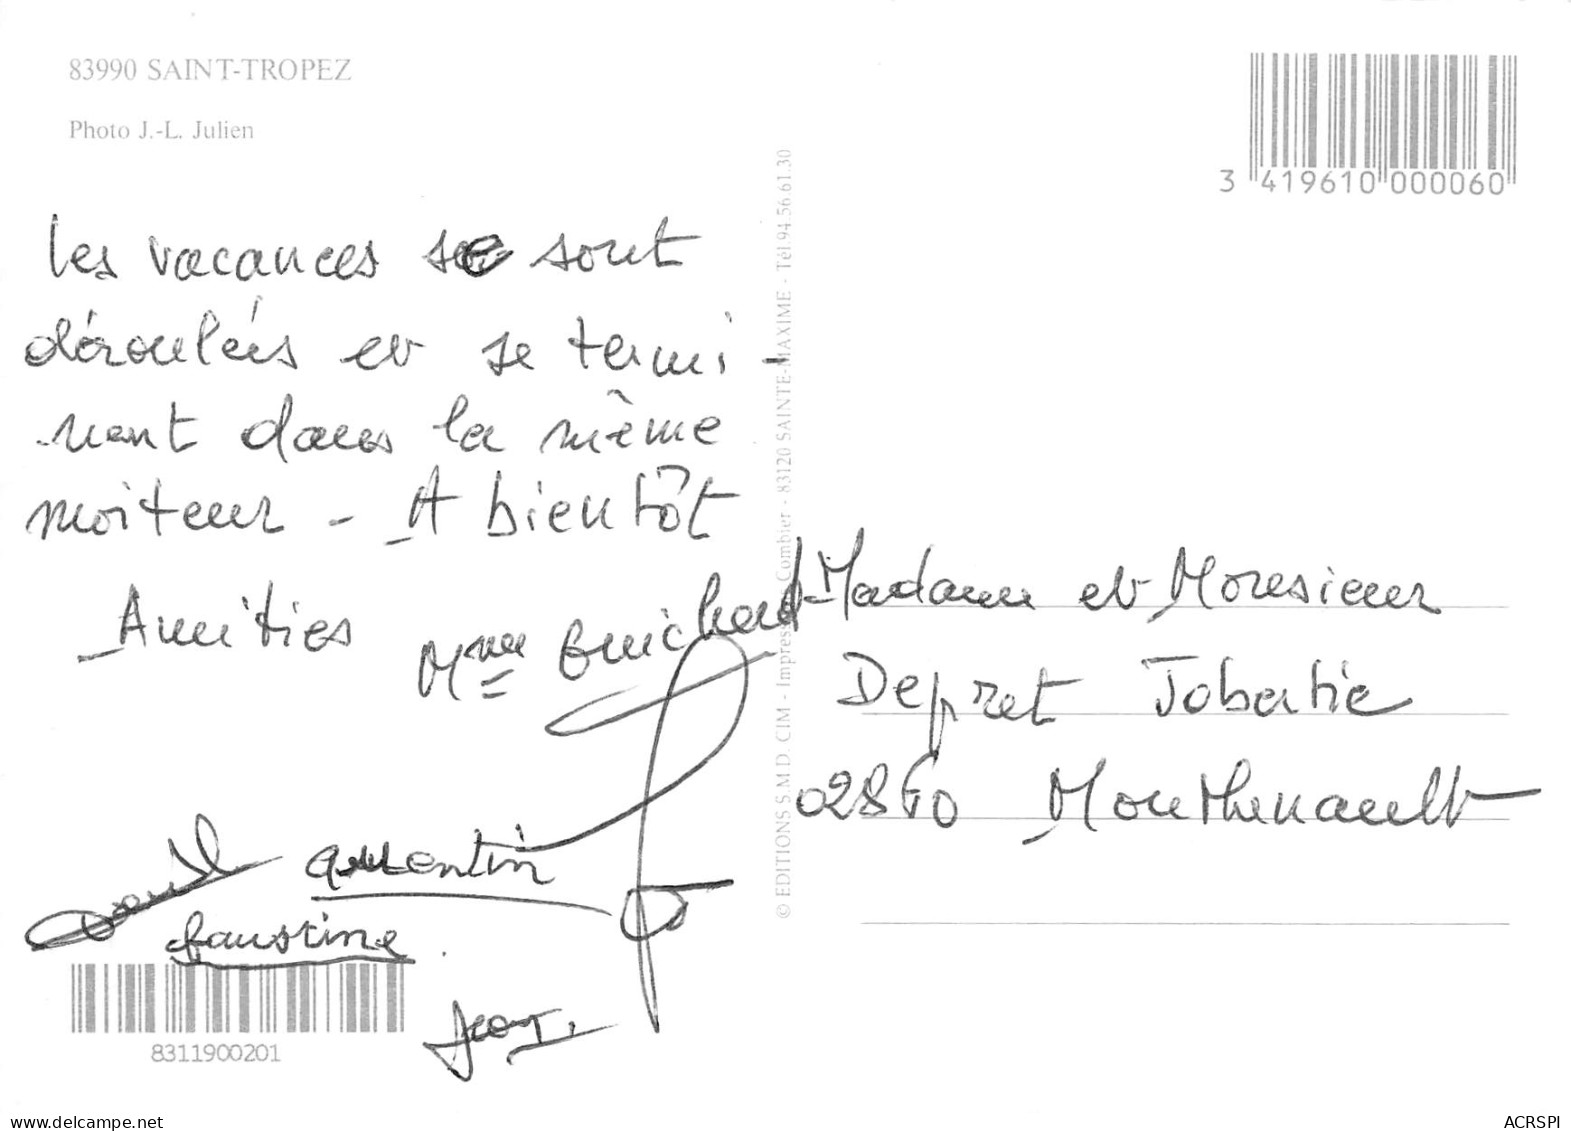 83990 SAINT-TROPEZ
Photo J.-L. Julien
3 419610 000060
les vacances se sont
déroulées et se termi-
nent dans la même
moiteur - A bientôt
Amitiés Mme Guichard
Quentin
faustine
8311900201
© EDITIONS S.M.D. CIM - Impress Combier - 83120 SAINTE-MAXIME - Tél. 94.56.61.30
Madame et Monsieur
Depret
02860 Monthenault
www.delcampe.net
ACRSPI